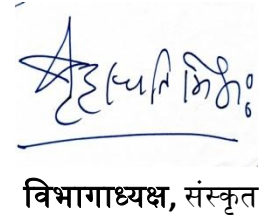 बृहस्पति मिश्रः
विभागाध्यक्ष, संस्कृत